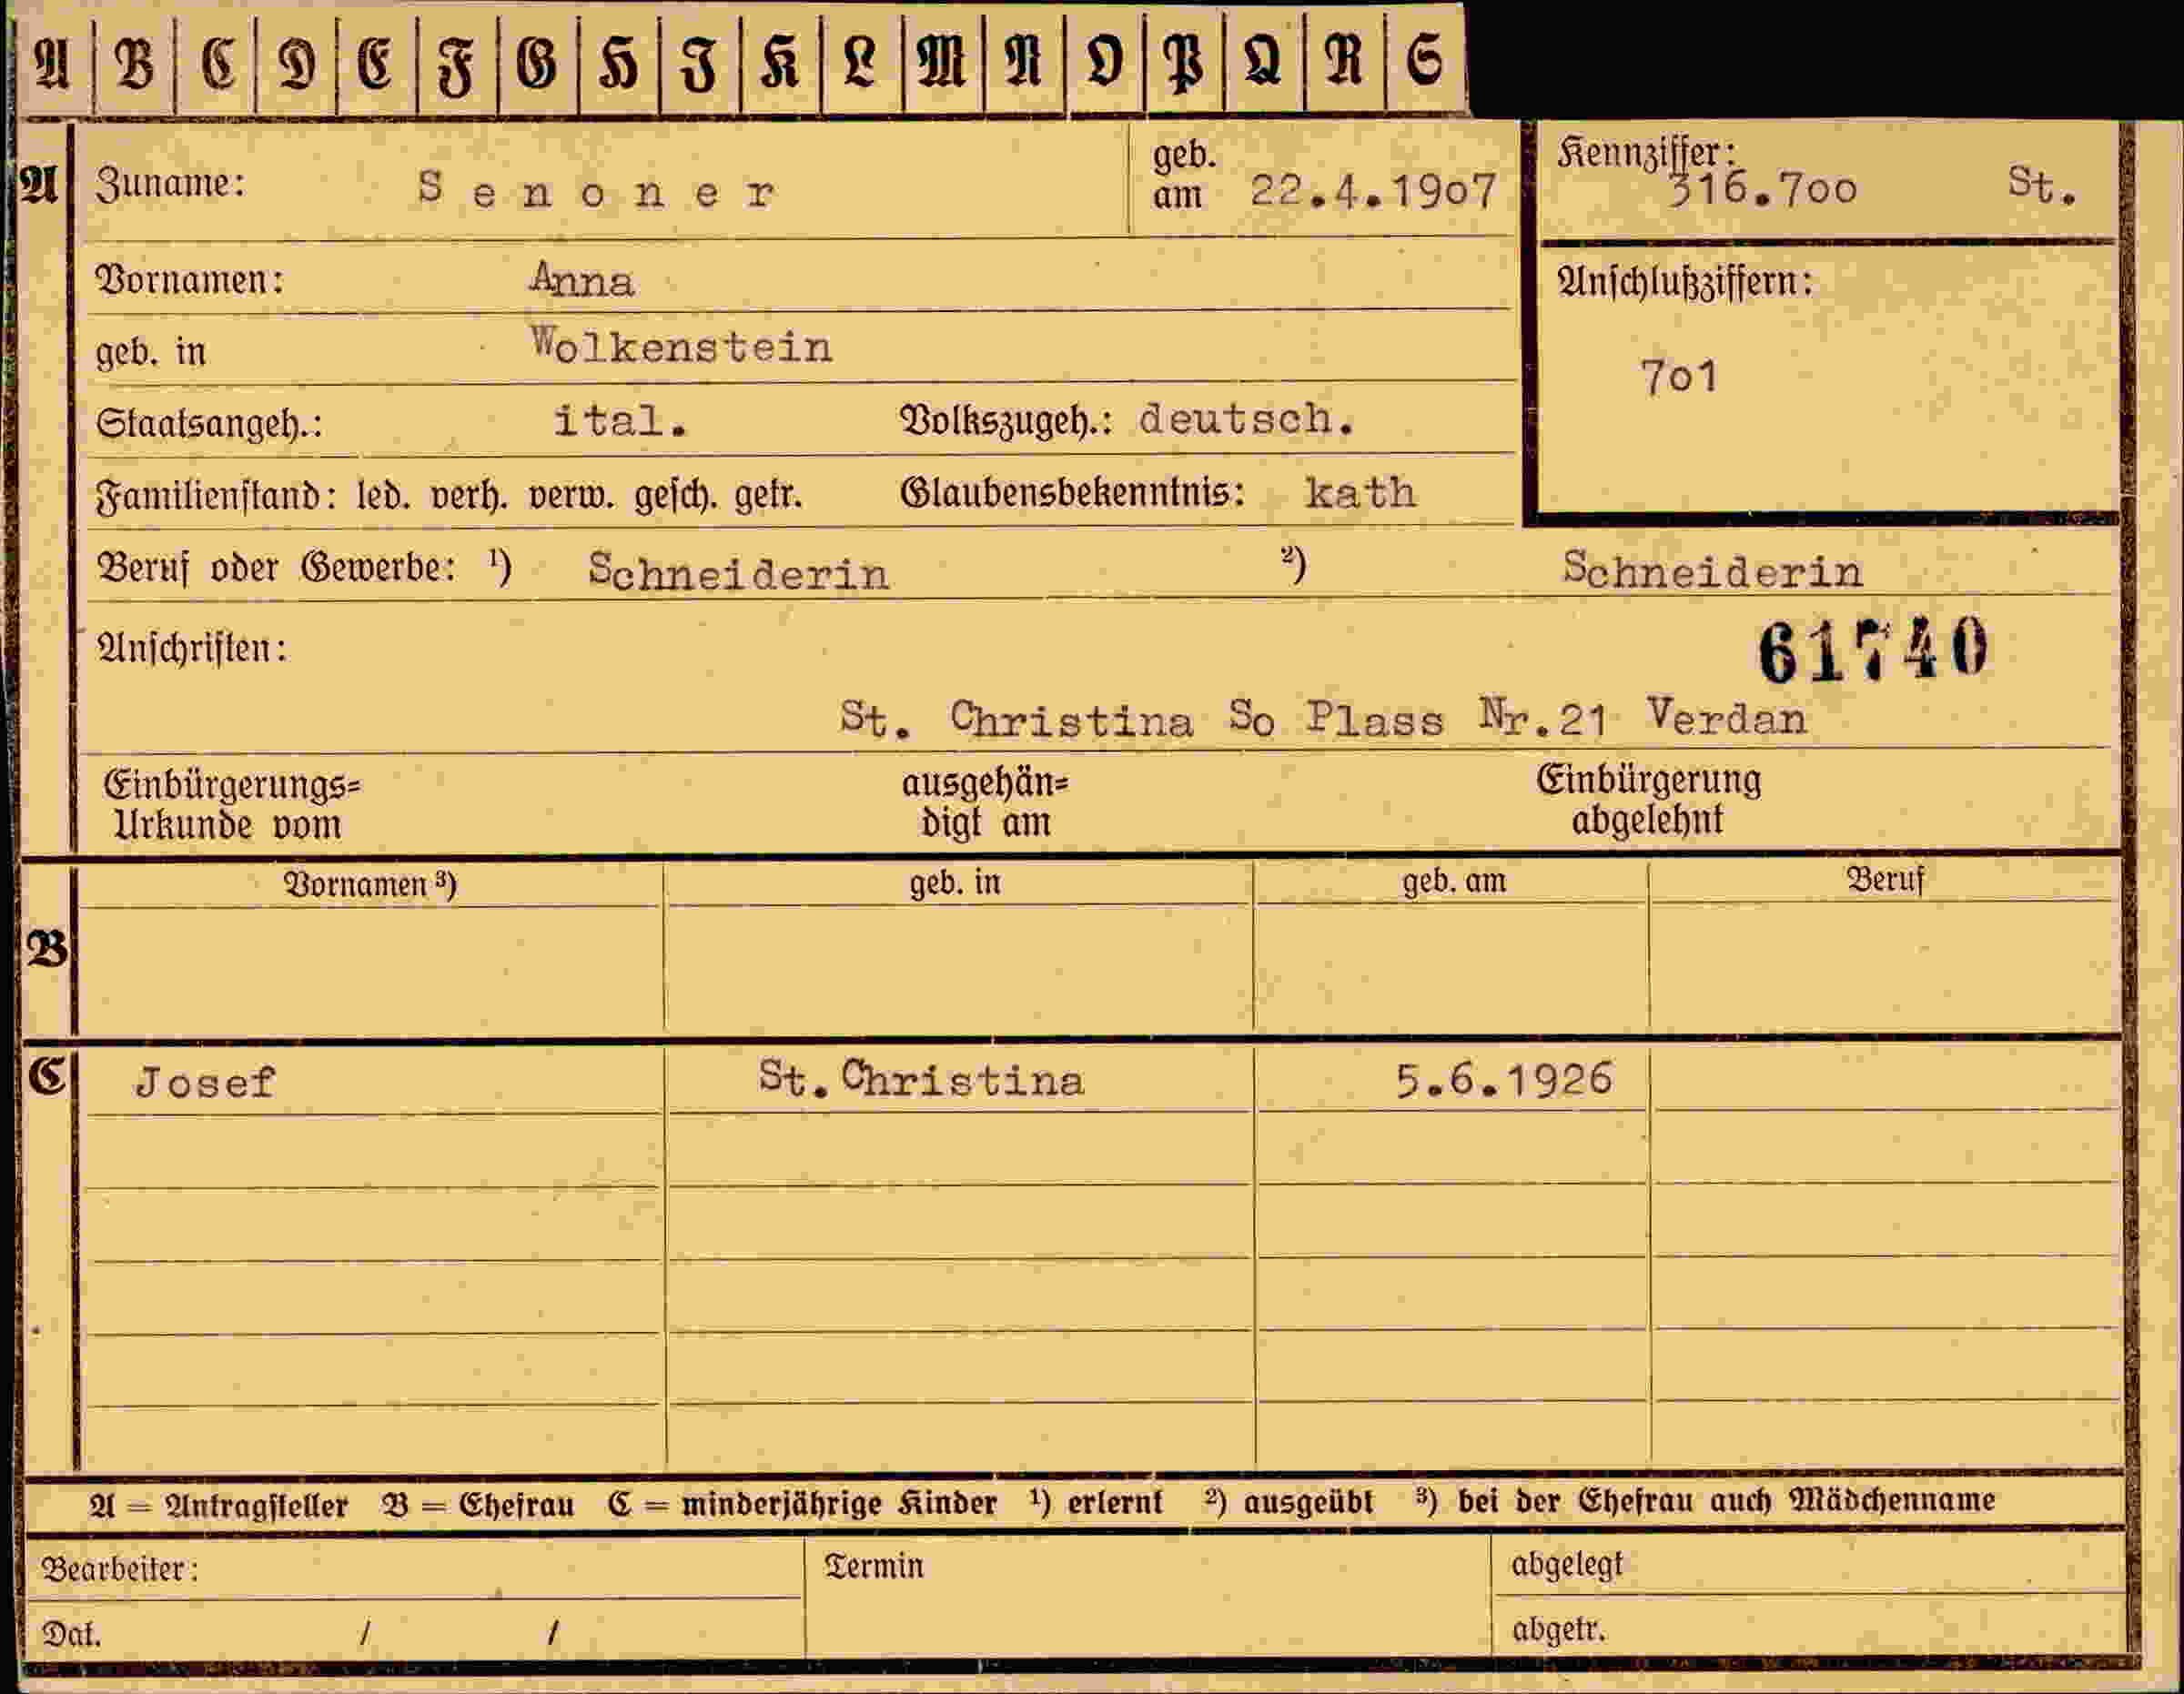 A B C D E F G H I K L M N O P Q R S
A Zuname: Senoner geb. am 22.4.1907 Kennziffer: 316.700 St.
Vornamen: Anna Anschlußziffern:
geb. in Wolkenstein 701
Staatsangeh.: ital. Volkszugeh.: deutsch.
Familienstand: led. verh. verw. gesch. getr. Glaubensbekenntnis: kath
Beruf oder Gewerbe: ¹) Schneiderin ²) Schneiderin
Anschriften: 61740
St. Christina So Plass Nr.21 Verdan
Einbürgerungs= ausgehän= Einbürgerung
Urkunde vom digt am abgelehnt
Vornamen ³) geb. in geb. am Beruf
B
C Josef St.Christina 5.6.1926
A = Antragsteller B = Ehefrau C = minderjährige Kinder ¹) erlernt ²) ausgeübt ³) bei der Ehefrau auch Mädchenname
Bearbeiter: Termin abgelegt
Dat. / / abgetr.